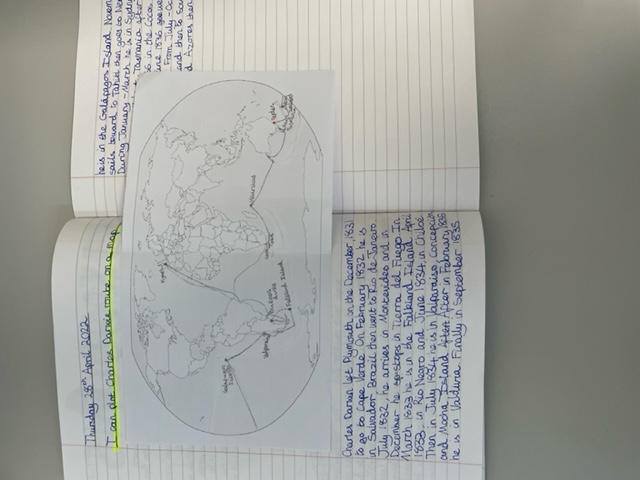 Thursday 28th April 2022
I can plot Charles Darwin route on a map
Plymouth
Mauritius
Falkland Island
Charles Darwin left Plymouth in the December 1831
to go to Cape Verde. On February 1832 he is
in Salvador, Brazil then went to Rio de Janeiro
July 1832, he arrives in Montevideo and in
December he stops in Tierra del Fuego. In
March 1833 he is in the Falkland Island April
1833, in Rio Negro and June 1834, in Chiloe
Then in July 1834 he is in Valparaiso, Concepcion
and Mocha Island After in February 1835
he is in Valdivia. Finally in September 1835
he is in the Galápagos Island Novem
sails toward to Tahiti then goes to Ne
During January - March he is in Sydn
Tasmania after
6 in the Cocos
June 1836 
From July - Oc
and then to Sou
d Azores then